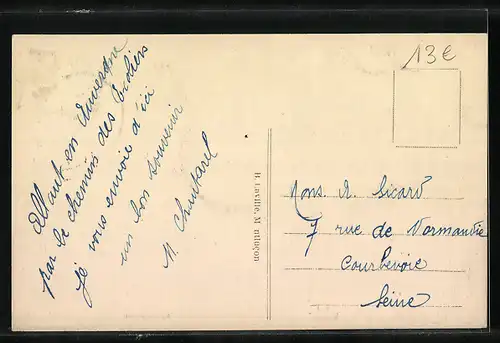 Allant en Auvergne
par le chemin des Ecoliers
je vous envoie d'ici
un bon souvenir
M. Chautarel
Mons. R. Sicard
7 rue de Normandie
Courbevoie
Seine
13€